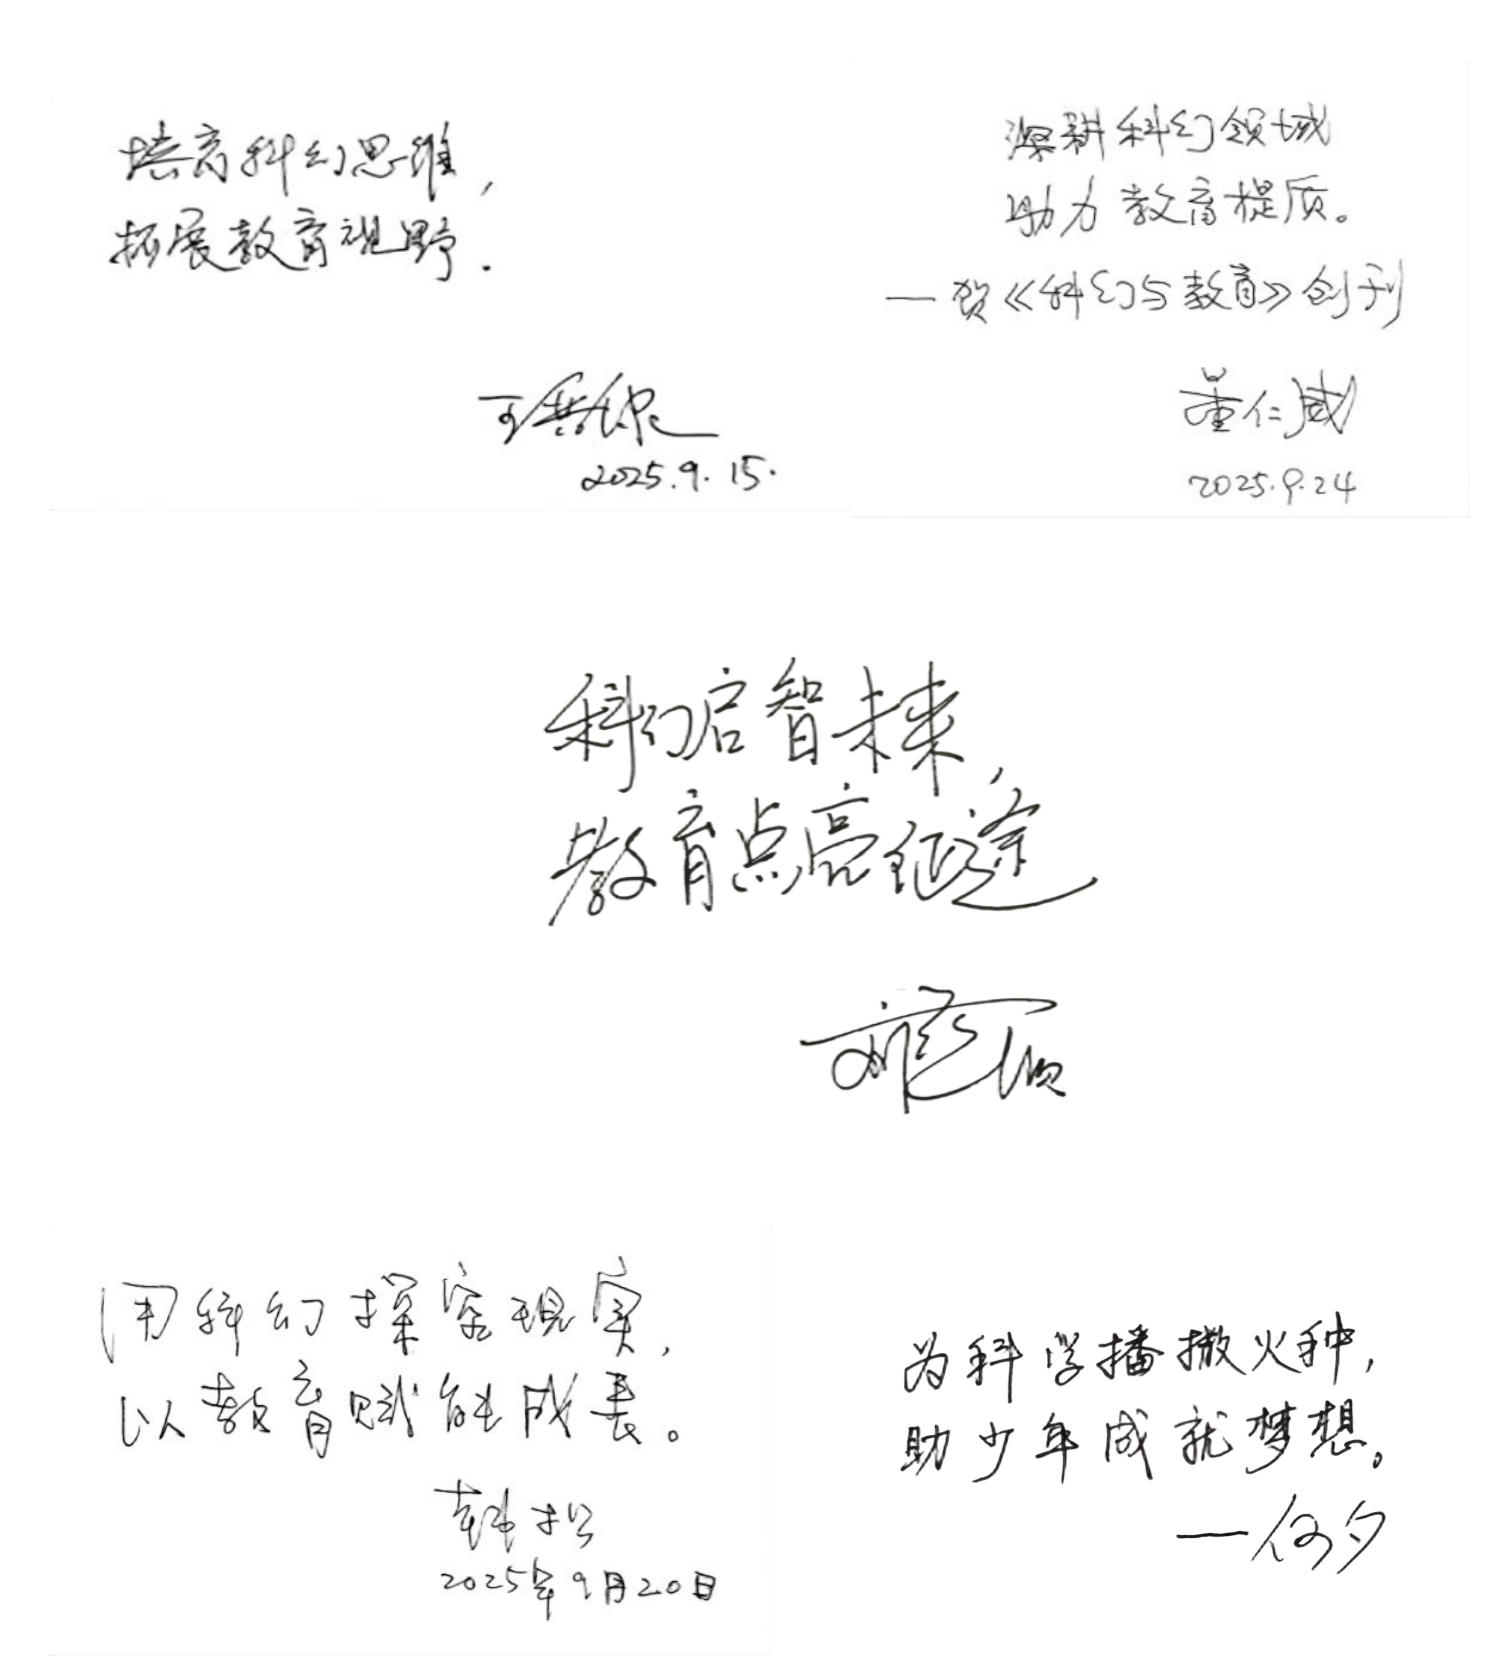 培育科幻思维，
拓展教育视野．
2025.9.15.
深耕科幻领域
助力教育提质。
—贺《科幻与教育》创刊
董仁威
2025.9.24
科幻启智未来，
教育点亮征途
用科幻探索现实，
以教育赋能成长。
韩松
2025年9月20日
为科学播撒火种，
助少年成就梦想。
—何夕